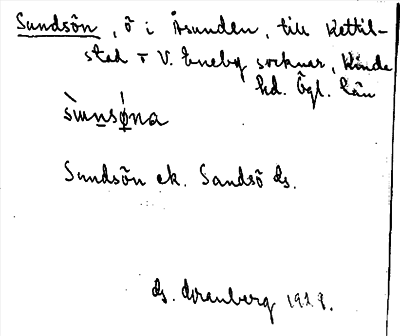 Sundsön, ö i Åsunden, till Kettil-
stad o V. Eneby socknar, Kinda
hd. Ögl. län
Sundsön ek. Sandsö ds.
ds. Granberg 1928.